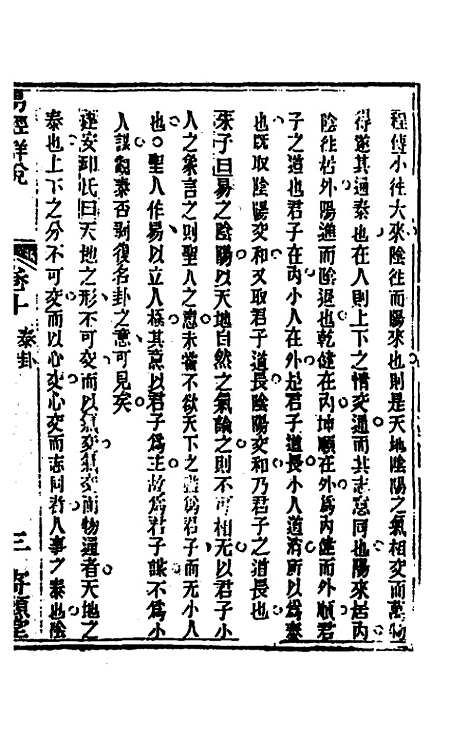 程傳小往大來陰往而陽來也則是天地陰陽之氣相交而萬物
得遂其通泰也在人則上下之情交通而其志意同也陽來居內
陰往居外陽進而陰退也乾健在內坤順在外為內健而外順君
子之道也君子在內小人在外是君子道長小人道消所以為泰
也旣取陰陽交和又取君子道長陰陽交和乃君子之道長也
朱子曰易之陰陽以天地自然之氣論之則不可相无以君子小
人之象言之則聖人之意未嘗不欲天下之盡為君子而无小人
也聖人作易以立人極其意以君子為主故為君子謀不為小
人謀觀泰否剝復名卦之意可見矣
建安邱氏曰天地之形不可交而以氣交氣交而物通者天地之
泰也上下之分不可交而以心交心交而志同者人事之泰也陰
易經詳說
卷十
泰卦
三
寄願堂